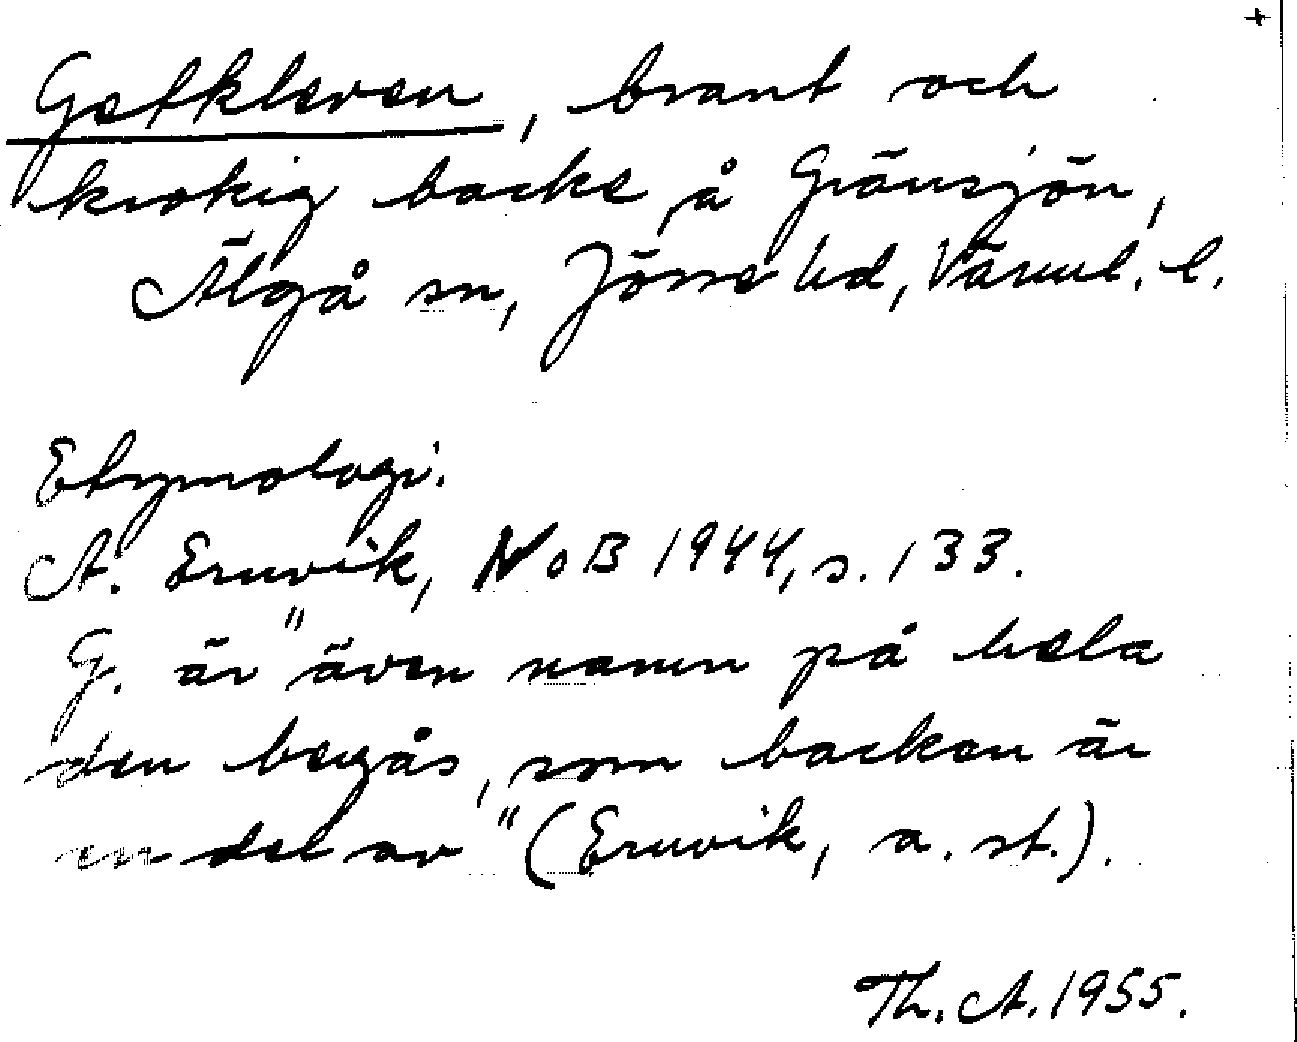 +
Getkleven, brant och
krokig backe, å Gränsjön,
Älgå sn, Jösse hd, Värml. l.
Etymologi.
A. Ernvik, NoB 1944, s. 133.
G. är "även namn på hela
den bergås, som backen är
en del av" (Ernvik, a. st.).
Th. A. 1955.